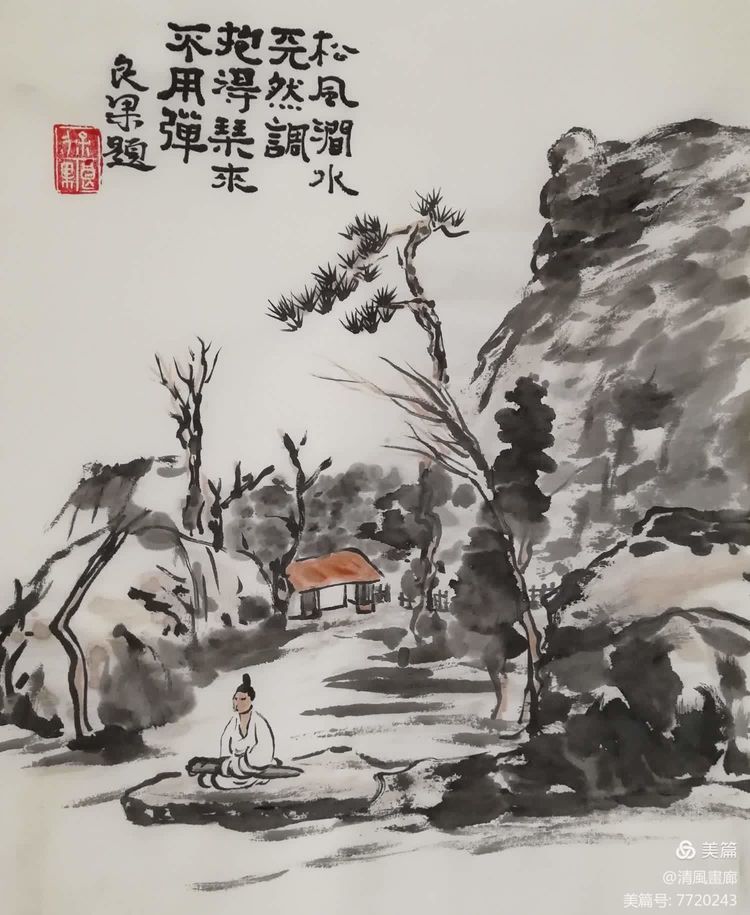 松風澗水
天然調
抱得琴來
不用彈
良果題
美篇
@清風畫廊
美篇号: 7720243